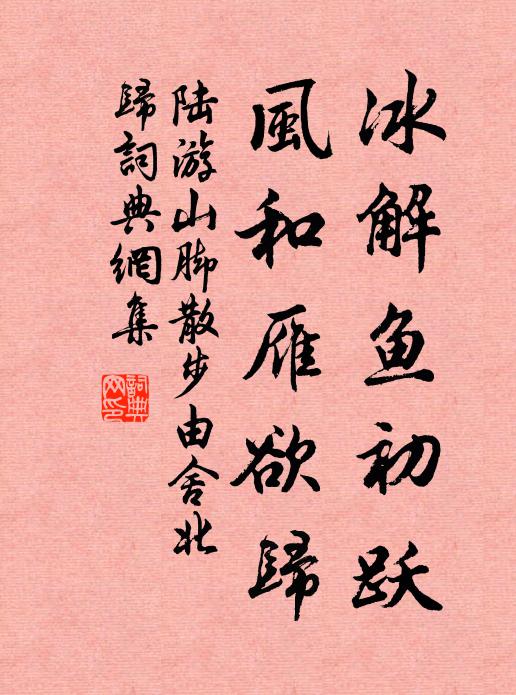 冰解鱼初跃
風和雁欲歸
陆游山脚散步由舍北
歸詞典網集
詞典網印